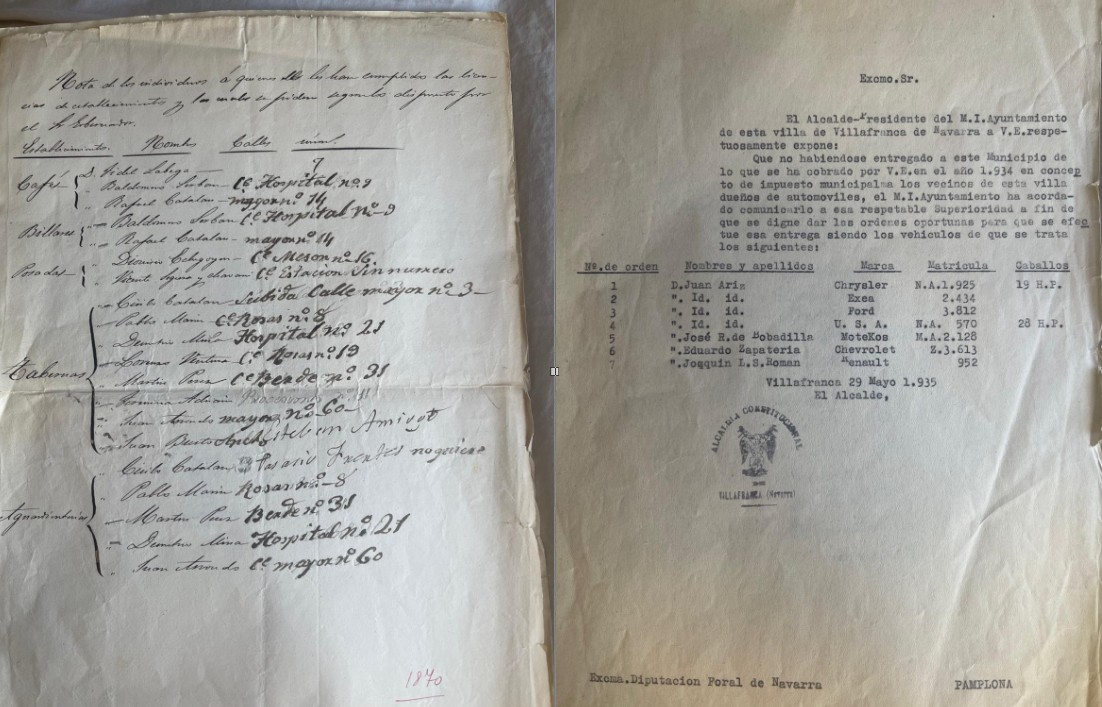 Nota de los individuos á quienes se les han cumplido las licen-
cias de establecimiento y las cuales se piden segun lo dispuesto por
el Sr Gobernador.
Establecimientos. Nombres Calles núm.
Cafés
D. Fidel Labega 7
" Baldomero Surban Ce Hospital nº 9
" Rafael Catalan - mayor nº 14
Billares
" Baldomero Surban Ce Hospital nº 9
" Rafael Catalan - mayor nº 14
Posadas
" Dionisio Echegoyen - Ce Meson nº 16
" Vicente Ce Estacion Sin numero
Tabernas
" Cirilo Catalan Subida Calle mayor nº 3-
" Pablo Marin Ce Rosas nº 8
" Demetrio Mina Hospital nº 21
" Lorenzo Ventura Ce Rosas nº 19
" Martin Perez Ce Berde nº 31
" Fermina
" Juan mayor nº 60-
" Juan Amigot
Aguardienterias
Cirilo Catalan no quiere
" Pablo Marin Rosas nº-8
" Martin Perez Berde nº 31
" Demetrio Mina Hospital nº 21
" Juan Ce mayor nº 60
1870
Excmo.Sr.
El Alcalde-Presidente del M.I.Ayuntamiento
de esta villa de Villafranca de Navarra a V.E.respe-
tuosamente expone:
Que no habiendose entregado a este Municipio de
lo que se ha cobrado por V.E.en el año 1.934 en concep
to de impuesto municipal a los vecinos de esta villa
dueños de automoviles, el M.I.Ayuntamiento ha acorda-
do comunicarlo a esa respetable Superioridad a fin de
que se digne dar las ordenes oportunas para que se efec
tue esa entrega siendo los vehiculos de que se trata
los siguientes:
Nº.de orden Nombres y apellidos Marca Matricula Caballos
1 D.Juan Ariz Chrysler N.A.1.925 19 H.P.
2 ". Id. id. Exea 2.434
3 ". Id. id. Ford 3.812
4 ". Id. id. U. S. A. N.A. 570 28 H.P.
5 ".José R.de Bobadilla MoteKos M.A.2.128
6 ".Eduardo Zapateria Chevrolet Z.3.613
7 ".Joqquin L.S.Roman Renault 952
Villafranca 29 Mayo 1.935
El Alcalde,
ALCALDIA CONSTITUCIONAL
VILLAFRANCA (Navarra)
Excma.Diputacion Foral de Navarra PAMPLONA